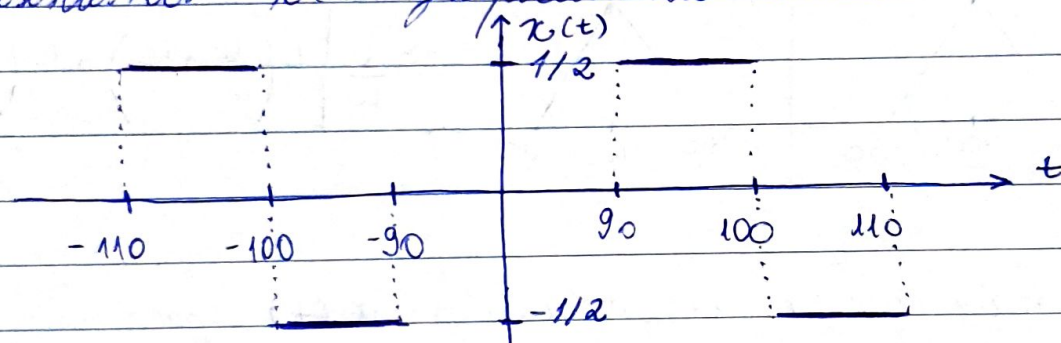 x(t)
1/2
t
-110 -100 -90 90 100 110
-1/2